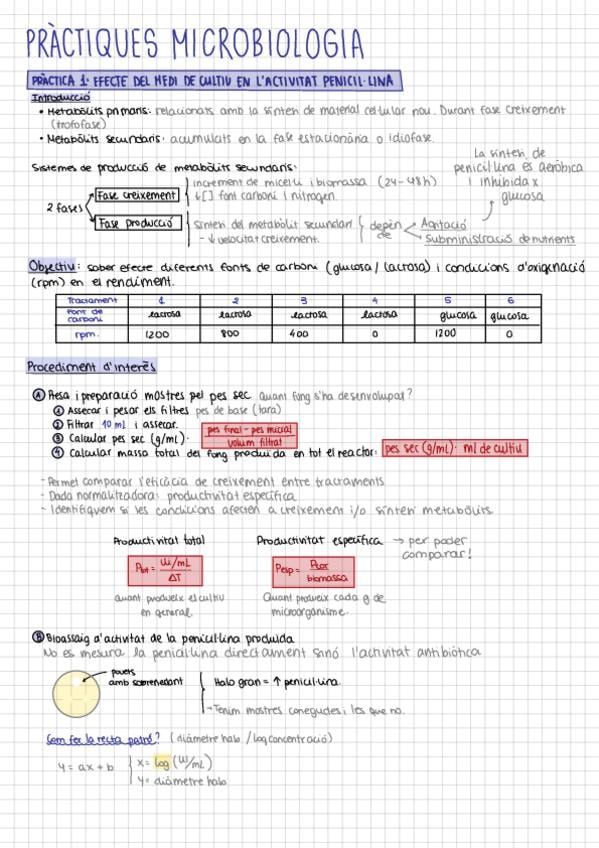 PRÀCTIQUES MICROBIOLOGIA
PRÀCTICA 1: EFECTE DEL MEDI DE CULTIU EN L'ACTIVITAT PENICIL·LINA
Introducció
• Metabòlits primaris: relacionats amb la síntesi de material cel·lular nou. Durant fase creixement
(trofofase)
• Metabòlits secundaris: acumulats en la fase estacionària o idiofase.
Sistemes de producció de metabòlits secundaris:
La síntesi de
penicil·lina és aeròbica
i inhibida x
glucosa
2 fases
Fase creixement
increment de miceli i biomassa (24-48h)
↓[] font carboni i nitrogen.
Fase producció
síntesi del metabòlit secundari
- ↓ velocitat creixement.
depèn de
Agitació
Subministració de nutrients
Objectiu: saber efecte diferents fonts de carboni (glucosa / lactosa) i condicions d'oxigenació
(rpm) en el rendiment.
Tractament 1 2 3 4 5 6
Font de carboni lactosa lactosa lactosa lactosa glucosa glucosa
rpm. 1200 800 400 0 1200 0
Procediment d'interès
A Pesa i preparació mostres pel pes sec Quant fong s'ha desenvolupat?
1 Assecar i pesar els filtres pes de base (tara)
2 Filtrar 10 mL i assecar.
3 Calcular pes sec (g/mL): pes final - pes inicial / volum filtrat
4 Calcular massa total del fong produïda en tot el reactor: pes sec (g/mL) · mL de cultiu
- Permet comparar l'eficàcia de creixement entre tractaments
- Dada normalitzadora: productivitat específica
- Identifiquem si les condicions afecten a creixement i/o síntesi metabòlits.
Productivitat total
Ptot = UI/mL / ΔT
Quant produeix el cultiu
en general.
Productivitat específica → per poder
comparar!
Pesp = Ptot / biomassa
Quant produeix cada g de
microorganisme.
B Bioassaig d'activitat de la penicil·lina produïda
No es mesura la penicil·lina directament sinó l'activitat antibiòtica
pouets
amb sobrenedant
Halo gran = ↑ penicil·lina.
→ Tenim mostres conegudes i les que no.
Com fer la recta patró? (diàmetre halo / log concentració)
y = ax + b
x = log (UI/mL)
y = diàmetre halo